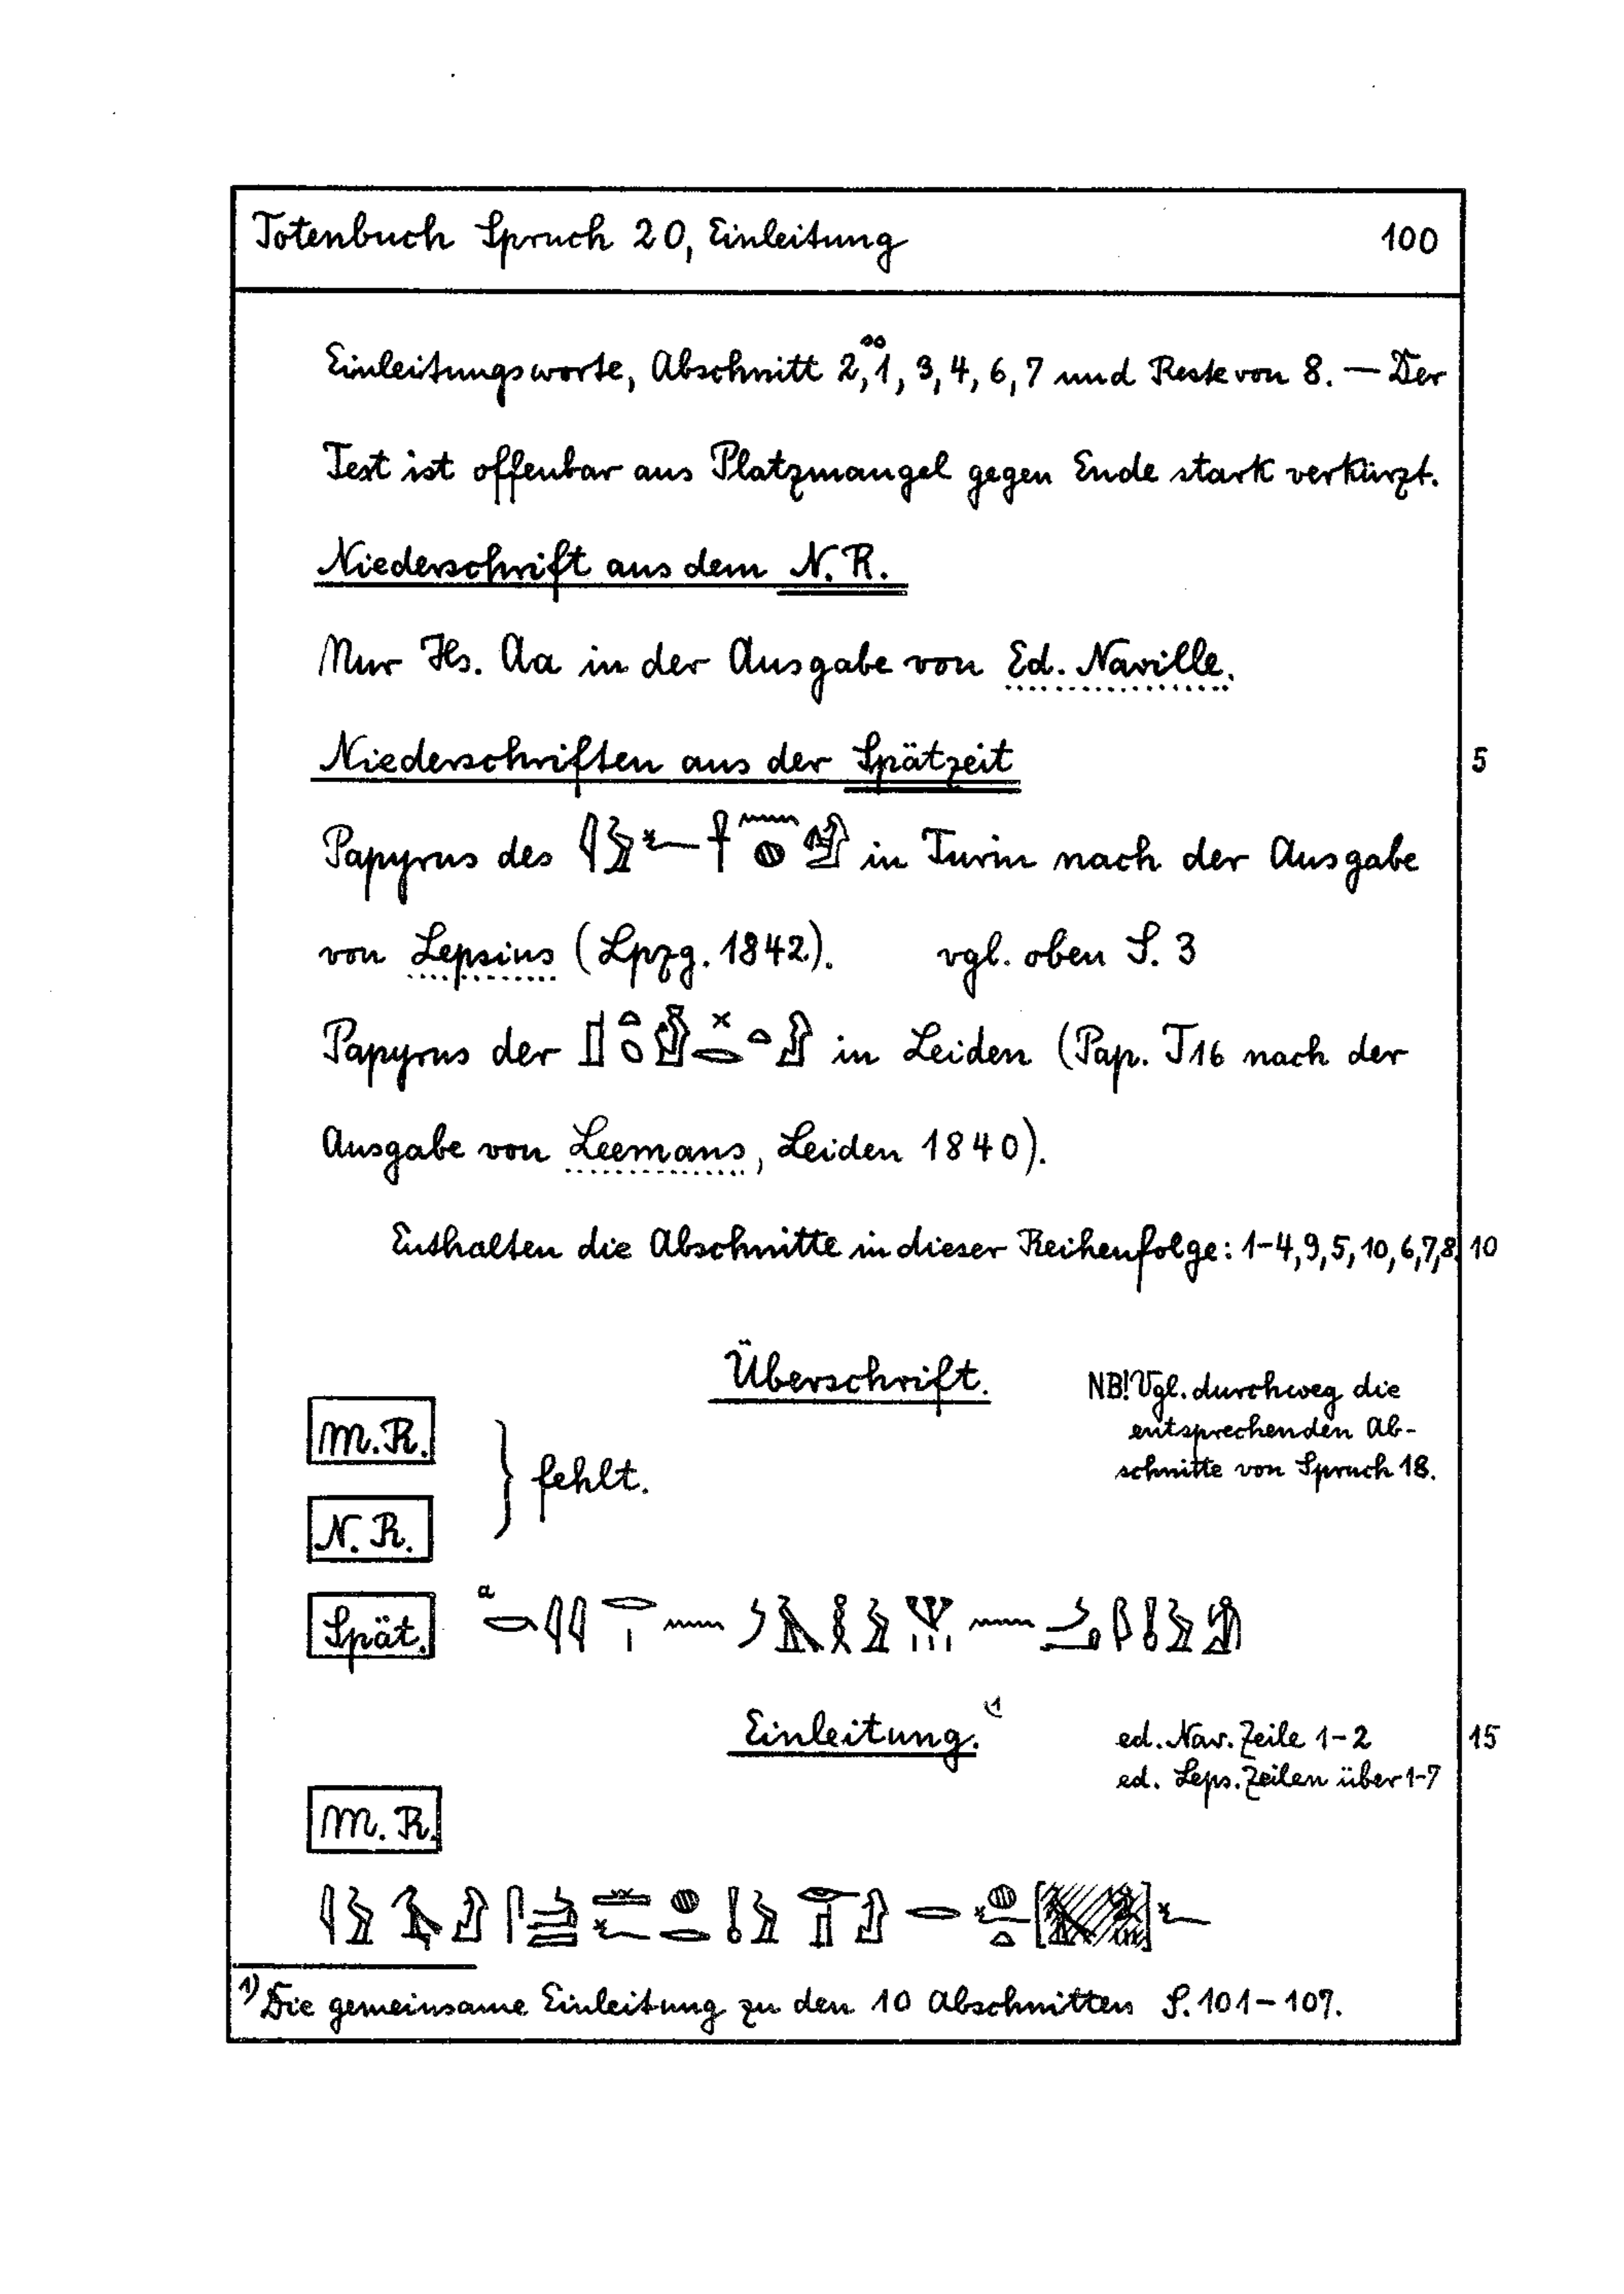 Totenbuch Spruch 20, Einleitung 100
Einleitungsworte, Abschnitt 2, 1, 3, 4, 6, 7 und Reste von 8. — Der
Text ist offenbar aus Platzmangel gegen Ende stark verkürzt.
Niederschrift aus dem N. R.
Nur Hs. Aa in der Ausgabe von Ed. Naville.
Niederschriften aus der Spätzeit 5
Papyrus des in Turin nach der Ausgabe
von Lepsius (Lpzg. 1842). vgl. oben S. 3
Papyrus der in Leiden (Pap. T16 nach der
Ausgabe von Leemans, Leiden 1840).
Enthalten die Abschnitte in dieser Reihenfolge: 1-4, 9, 5, 10, 6, 7, 8. 10
Überschrift.
NB! Vgl. durchweg die
entsprechenden Ab-
schnitte von Spruch 18.
M. R.
fehlt.
N. R.
Spät. a
Einleitung. 1)
ed. Nav. Zeile 1-2 15
ed. Leps. Zeilen über 1-7
M. R.
1) Die gemeinsame Einleitung zu den 10 Abschnitten S. 101-107.